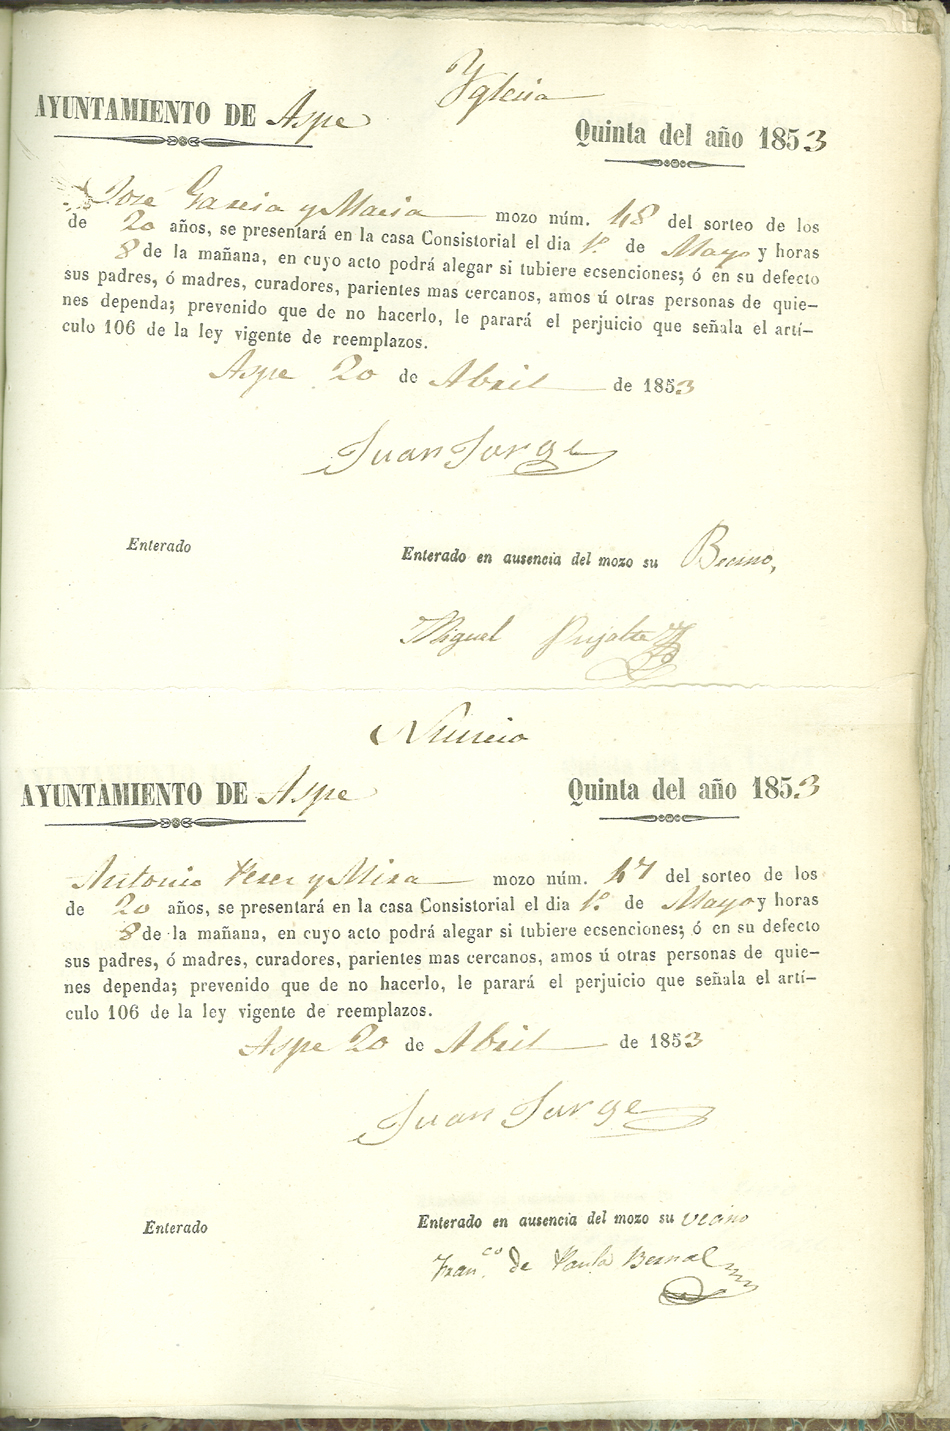 Yglesia
AYUNTAMIENTO DE Aspe
Quinta del año 1853
José Garcia y Maria mozo núm. 48 del sorteo de los
de 20 años, se presentará en la casa Consistorial el dia 1º de Mayo y horas
8 de la mañana, en cuyo acto podrá alegar si tubiere ecsenciones; ó en su defecto
sus padres, ó madres, curadores, parientes mas cercanos, amos ú otras personas de quie-
nes dependa; prevenido que de no hacerlo, le parará el perjuicio que señala el artí-
culo 106 de la ley vigente de reemplazos.
Aspe 20 de Abril de 1853
Juan Jorge
Enterado
Enterado en ausencia del mozo su Becino,
Miguel
Nuncio
AYUNTAMIENTO DE Aspe
Quinta del año 1853
Antonio Perez y Mira mozo núm. 47 del sorteo de los
de 20 años, se presentará en la casa Consistorial el dia 1º de Mayo y horas
8 de la mañana, en cuyo acto podrá alegar si tubiere ecsenciones; ó en su defecto
sus padres, ó madres, curadores, parientes mas cercanos, amos ú otras personas de quie-
nes dependa; prevenido que de no hacerlo, le parará el perjuicio que señala el artí-
culo 106 de la ley vigente de reemplazos.
Aspe 20 de Abril de 1853
Juan Jorge
Enterado
Enterado en ausencia del mozo su vecino
Fran.co de Paula Bernal